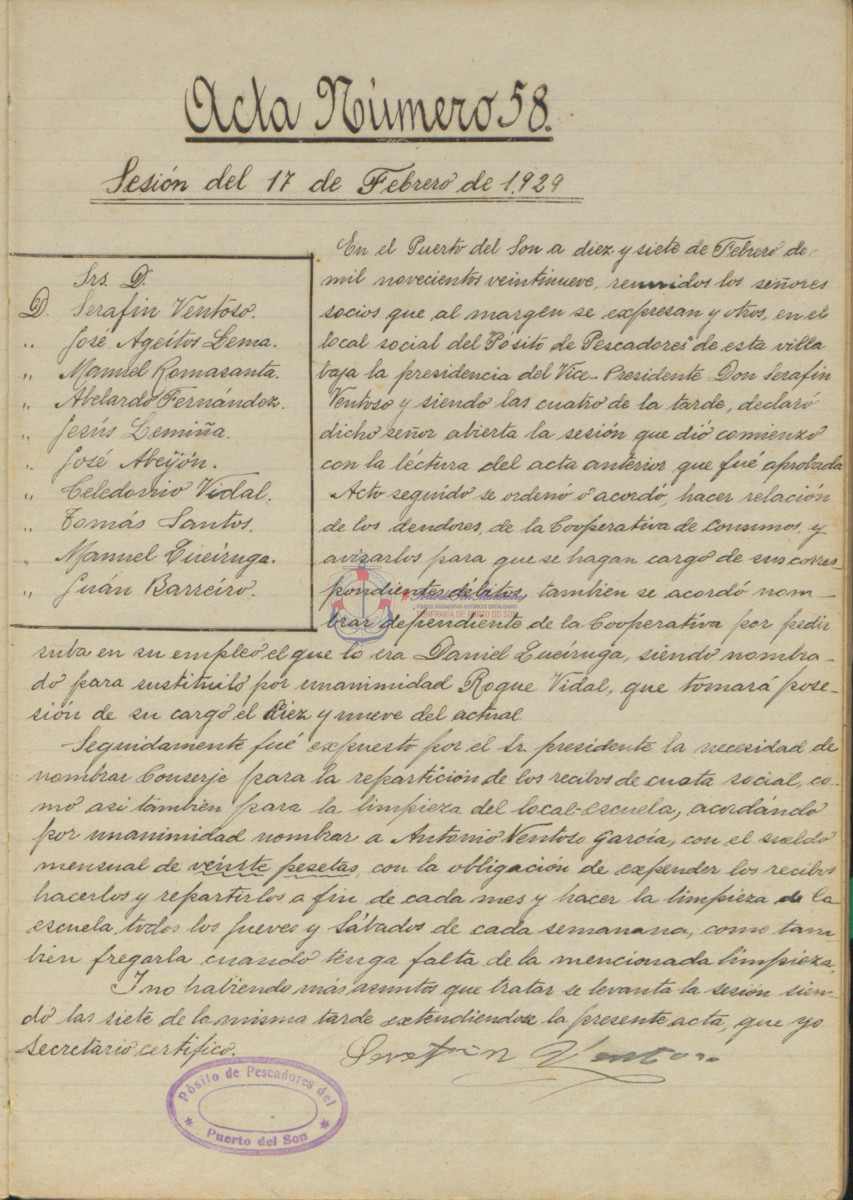 Acta Número 58.
Sesión del 17 de Febrero de 1.929
Srs. D.
D. Serafin Ventoso.
" José Ageitos Lema.
" Manuel Romasanta.
" Abelardo Fernández.
" Jesús Lemiña.
" José Abeijón.
" Celedonio Vidal.
" Tomás Santos.
" Manuel Lueiruga.
" Juán Barreiro.
En el Puerto del Son a diez y siete de Febrero de
mil novecientos veintinueve, reunidos los señores
socios que al margen se expresan y otros, en el
local social del "Pósito de Pescadores" de esta villa
baja la presidencia del Vice-Presidente Don Serafin
Ventoso y siendo las cuatro de la tarde, declaró
dicho señor abierta la sesión que dió comienzo
con la léctura del acta anterior que fué aprobada
Acto seguido se ordenó ó acordó, hacer relación
de los deudores, de la Cooperativa de consumos, y
avisarlos para que se hagan cargo de sus corres-
pondientes débitos, tambien se acordó nom-
brar dependiente de la Cooperativa por pedir
suba en su empleo el que lo era Daniel Lueiruga, siendo nombra-
do para sustituilo por unanimidad Roque Vidal, que tomará pose-
sión de su cargo el diez y nueve del actual
Seguidamente fué expuesto por el Sr. presidente la necesidad de
nombrar Conserje para la repartición de los recibos de cuata social, co-
mo asi tambien para la limpieza del local-escuela, acordándo
por unanimidad nombrar a Antonio Ventoso García, con el sueldo
mensual de veinte pesetas, con la obligación de expender los recibos
hacerlos y repartirlos a fin de cada mes y hacer la limpieza de la
escuela todos los jueves y Sábados de cada semanana, como tam-
bien fregarla cuando tenga falta de la mencionada limpieza.
I no habiendo más asuntos que tratar se levanta la sesión sien-
do las siete de la misma tarde extendiendose la presente acta, que yo
secretario certifico.
Serafin Ventoso
Pósito de Pescadores del
Puerto del Son
FONDOS DOCUMENTAIS HISTÓRICOS DIXITALIZADOS
CONFRARÍA DE PORTO DO SON